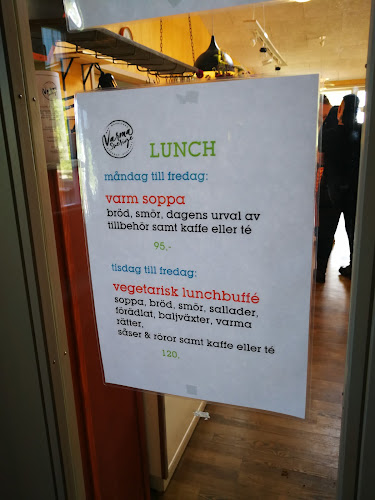 Varma
Sverige
LUNCH
måndag till fredag:
varm soppa
bröd, smör, dagens urval av
tillbehör samt kaffe eller té
95,-
tisdag till fredag:
vegetarisk lunchbuffé
soppa, bröd, smör, sallader,
förädlat, baljväxter, varma
rätter,
såser & röror samt kaffe eller té
120,